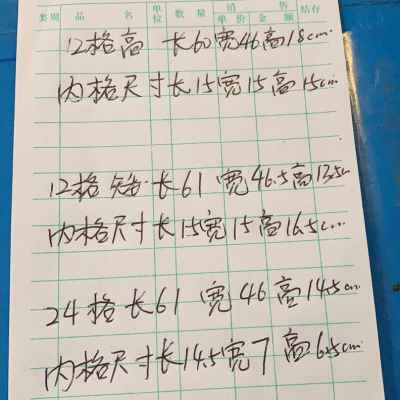 类别 品名 单位 数量 销售 单价 金额 结存
12格高 长60宽46高18cm.
内格尺寸长15宽15高15cm.
12格矮 长61 宽46.5高13.5cm
内格尺寸长15宽15高16.5cm
24格长61 宽46高14.5cm.
内格尺寸长14.5宽7高6.5cm.